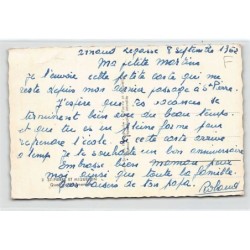 8 septembre 1962
Ma petite
Je t'envoie cette petite carte qui me
reste depuis mon dernier passage à St Pierre.
J'espère que tes vacances se
terminent bien avec du beau temps
et que tu es en pleine forme pour
reprendre l'école. Si cette carte arrive
à temps je te souhaite un bon anniversaire
Embrasse bien maman pour
moi ainsi que toute la famille.
Gros baisers de ton papa.
Roland
F